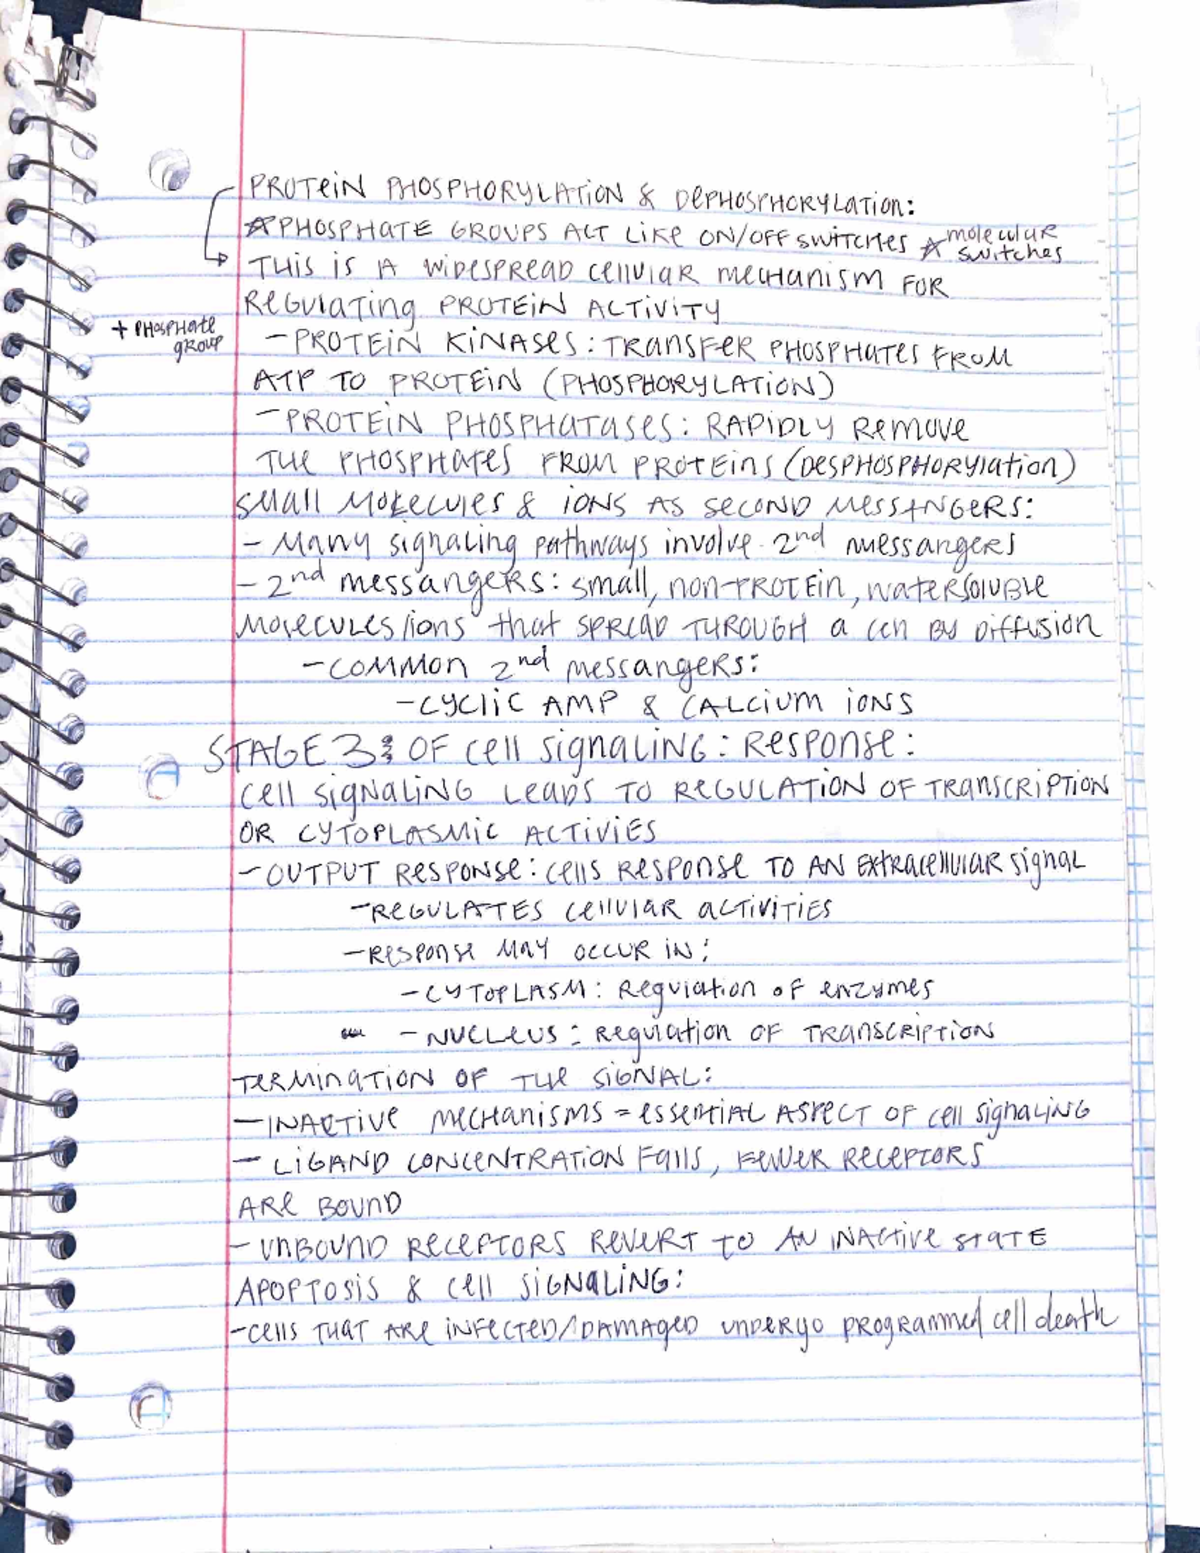 PROTEIN PHOSPHORYLATION & DEPHOSPHORYLATION:
☆PHOSPHATE GROUPS ACT LIKE ON/OFF SWITCHES ☆ molecular switches
THIS IS A WIDESPREAD CELLULAR MECHANISM FOR
REGULATING PROTEIN ACTIVITY
+ PHOSPHATE group
- PROTEIN KINASES: TRANSFER PHOSPHATES FROM
ATP TO PROTEIN (PHOSPHORYLATION)
- PROTEIN PHOSPHATASES: RAPIDLY REMOVE
THE PHOSPHATES FROM PROTEINS (DESPHOSPHORYLATION)
SMALL MOLECULES & IONS AS SECOND MESSANGERS:
- MANY signaling pathways involve 2nd messangers
- 2nd messangers: small, non-PROTEIN, WATERSOLUBLE
MOLECULES/IONS that SPREAD THROUGH a cell BY Diffusion
- COMMON 2nd messangers:
- CYCLIC AMP & CALCIUM IONS
STAGE 3: OF Cell SIGNALING: RESPONSE:
Cell SIGNALING LEADS TO REGULATION OF TRANSCRIPTION
OR CYTOPLASMIC ACTIVIES
- OUTPUT RESPONSE: Cells RESPONSE TO AN EXTRACELLULAR SIGNAL
- REGULATES CELLULAR ACTIVITIES
- RESPONSE MAY OCCUR IN:
- CYTOPLASM: Regulation OF enzymes
- NUCLEUS: Regulation OF TRANSCRIPTION
TERMINATION OF THE SIGNAL:
- INACTIVE MECHANISMS = ESSENTIAL ASPECT OF cell signaling
- LIGAND CONCENTRATION Falls, FEWER RECEPTORS
ARE BOUND
- UNBOUND RECEPTORS REVERT TO AN INACTIVE STATE
APOPTOSIS & Cell SIGNALING:
- Cells THAT ARE INFECTED/DAMAGED undergo programmed cell death